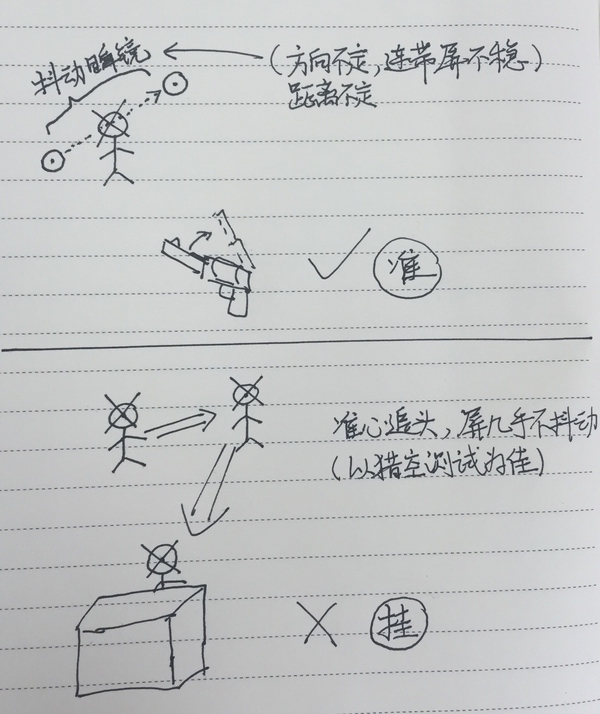 抖动瞬镜
(方向不定,连带屏不稳)
距离不定
准
准心追头,屏几乎不抖动
(以猎空测试为佳)
挂